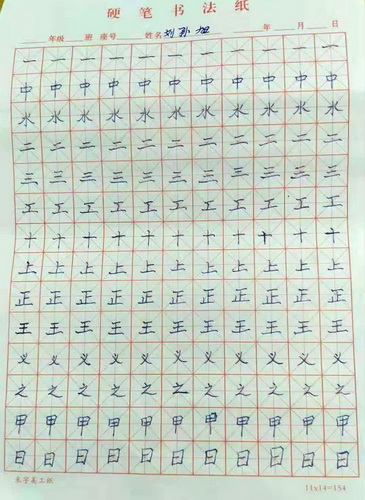 硬笔书法纸
年级 班 座号 姓名 刘 年 月 日
一一一一一一一一一一一
中中中中中中中中中中中
水水水水水水水水水水水
二二二二二二二二二二二
三三三三三三三三三三三
工工工工工工工工工工工
十十十十十十十十十十十
上上上上上上上上上上上
正正正正正正正正正正正
王王王王王王王王王王王
义义义义义义义义义义义
之之之之之之之之之之之
甲甲甲甲甲甲甲甲甲甲甲
日日日日日日日日日日日
11x14=154